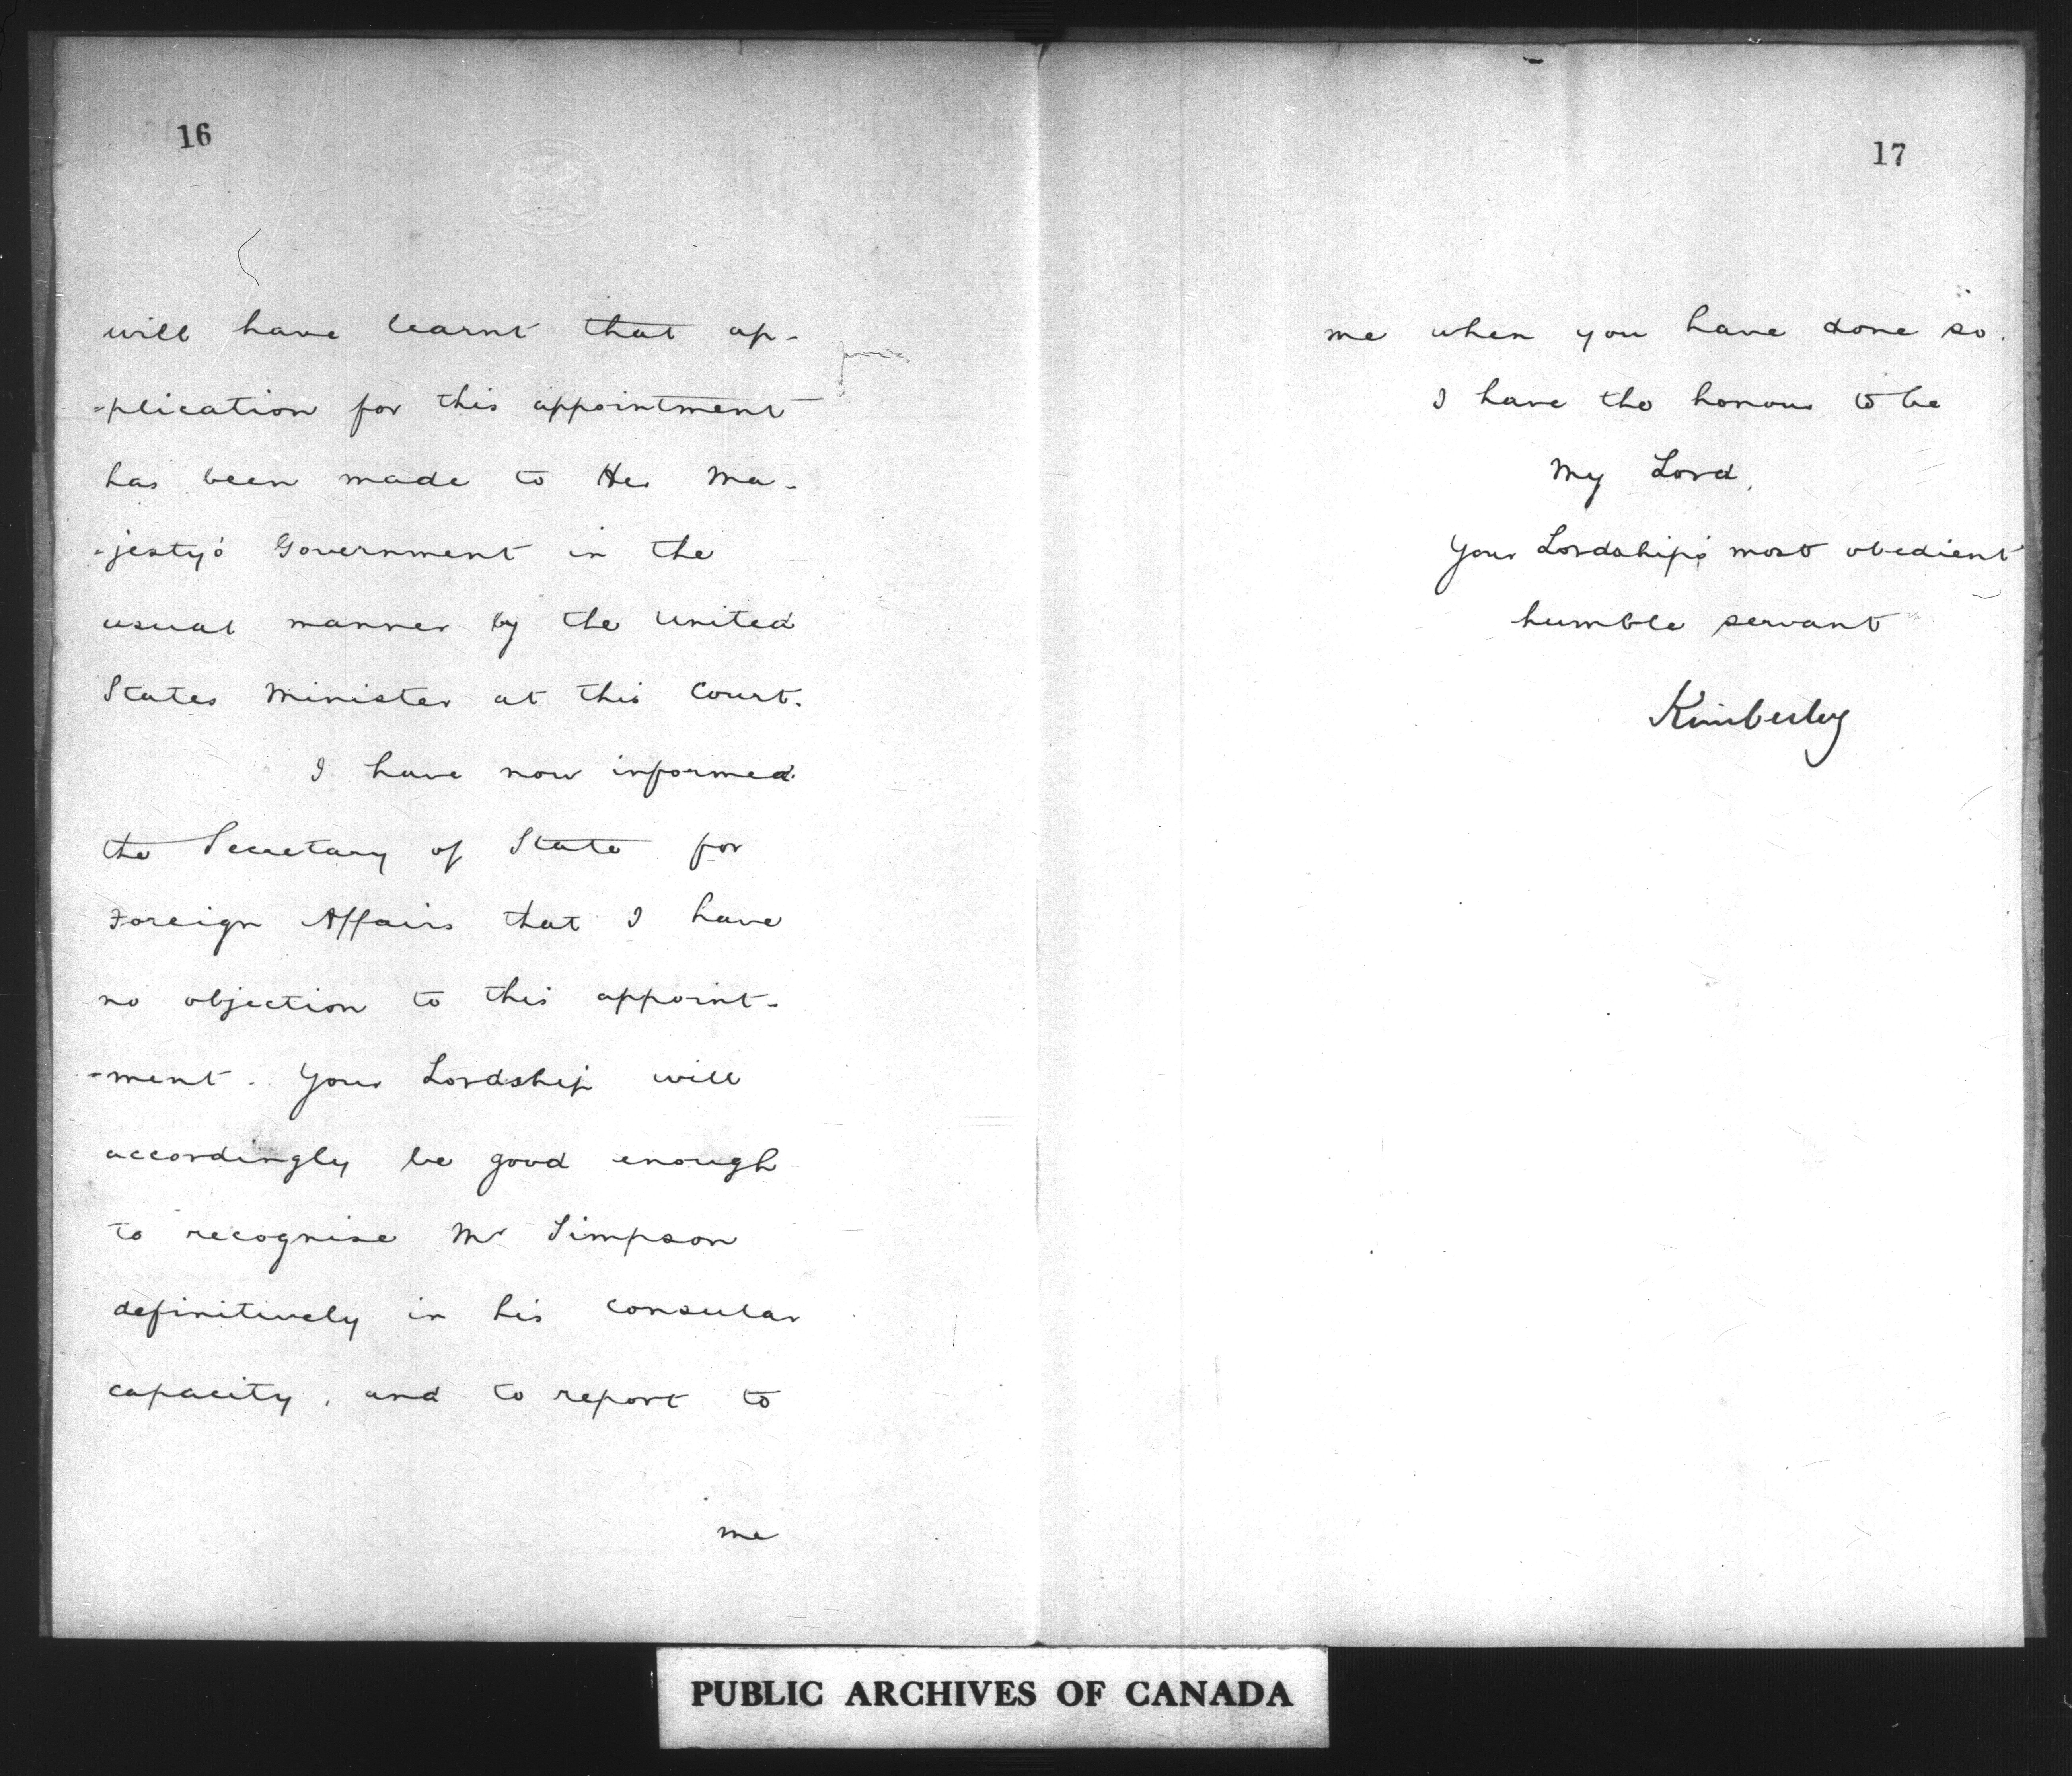 16
will have learnt that ap-
-plication for this appointment
has been made to Her Ma-
-jesty's Government in the
usual manner by the United
States Minister at this Court.
I have now informed
the Secretary of State for
Foreign Affairs that I have
no objection to this appoint-
-ment. Your Lordship will
accordingly be good enough
to recognise Mr Simpson
definitively in his consular
capacity, and to report to
me
17
me when you have done so.
I have the honour to be
My Lord,
Your Lordship's most obedient
humble servant
Kimberley
PUBLIC ARCHIVES OF CANADA